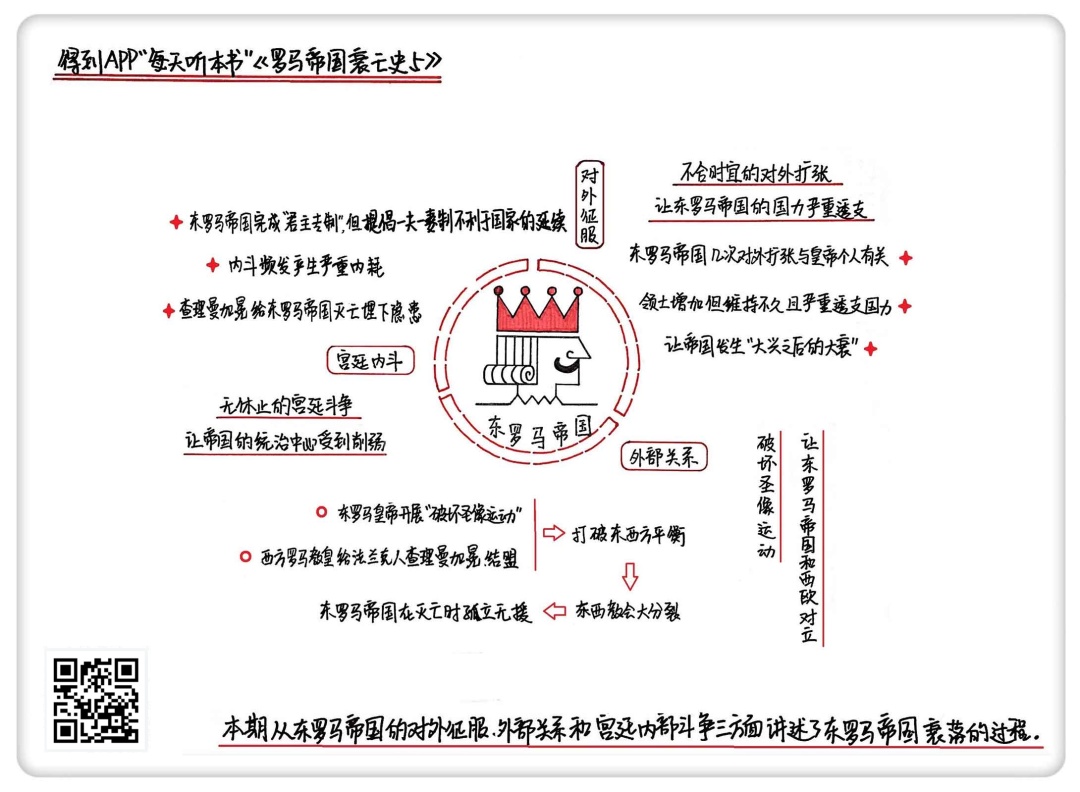 得到APP“每天听本书”《罗马帝国衰亡史5》
对外征服
不合时宜的对外扩张
让东罗马帝国的国力严重透支
东罗马帝国几次对外扩张与皇帝个人有关
领土增加但维持不久且严重透支国力
让帝国发生“大兴之后的大衰”
东罗马帝国完成“君主专制”,但提倡一夫一妻制不利于国家的延续
内斗频发产生严重内耗
查理曼加冕给东罗马帝国灭亡埋下隐患
宫廷内斗
无休止的宫廷斗争
让帝国的统治中心受到削弱
东罗马帝国
外部关系
破坏圣像运动
让东罗马帝国和西欧对立
东罗马皇帝开展“破坏圣像运动”
西方罗马教皇给法兰克人查理曼加冕、结盟
打破东西方平衡
东西教会大分裂
东罗马帝国在灭亡时孤立无援
本期从东罗马帝国的对外征服、外部关系和宫廷内部斗争三方面讲述了东罗马帝国衰落的过程.